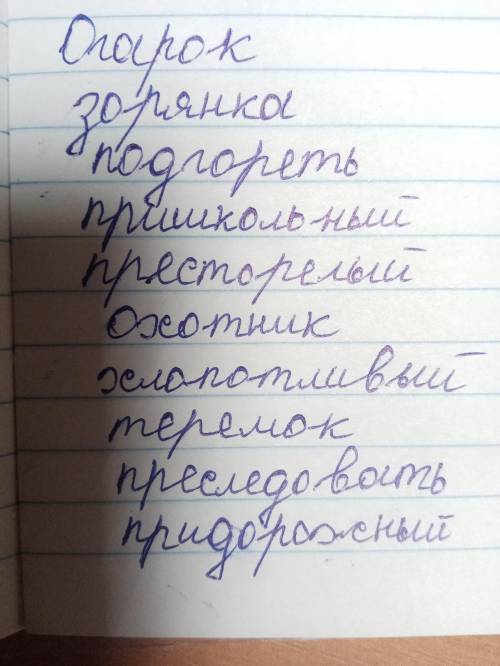 Огарок
зорянка
подгореть
пришкольный
престорелый
охотник
хлопотливый
теремок
преследовать
придорожный